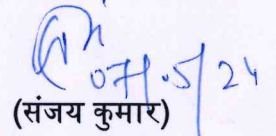 07/.5/24
(संजय कुमार)